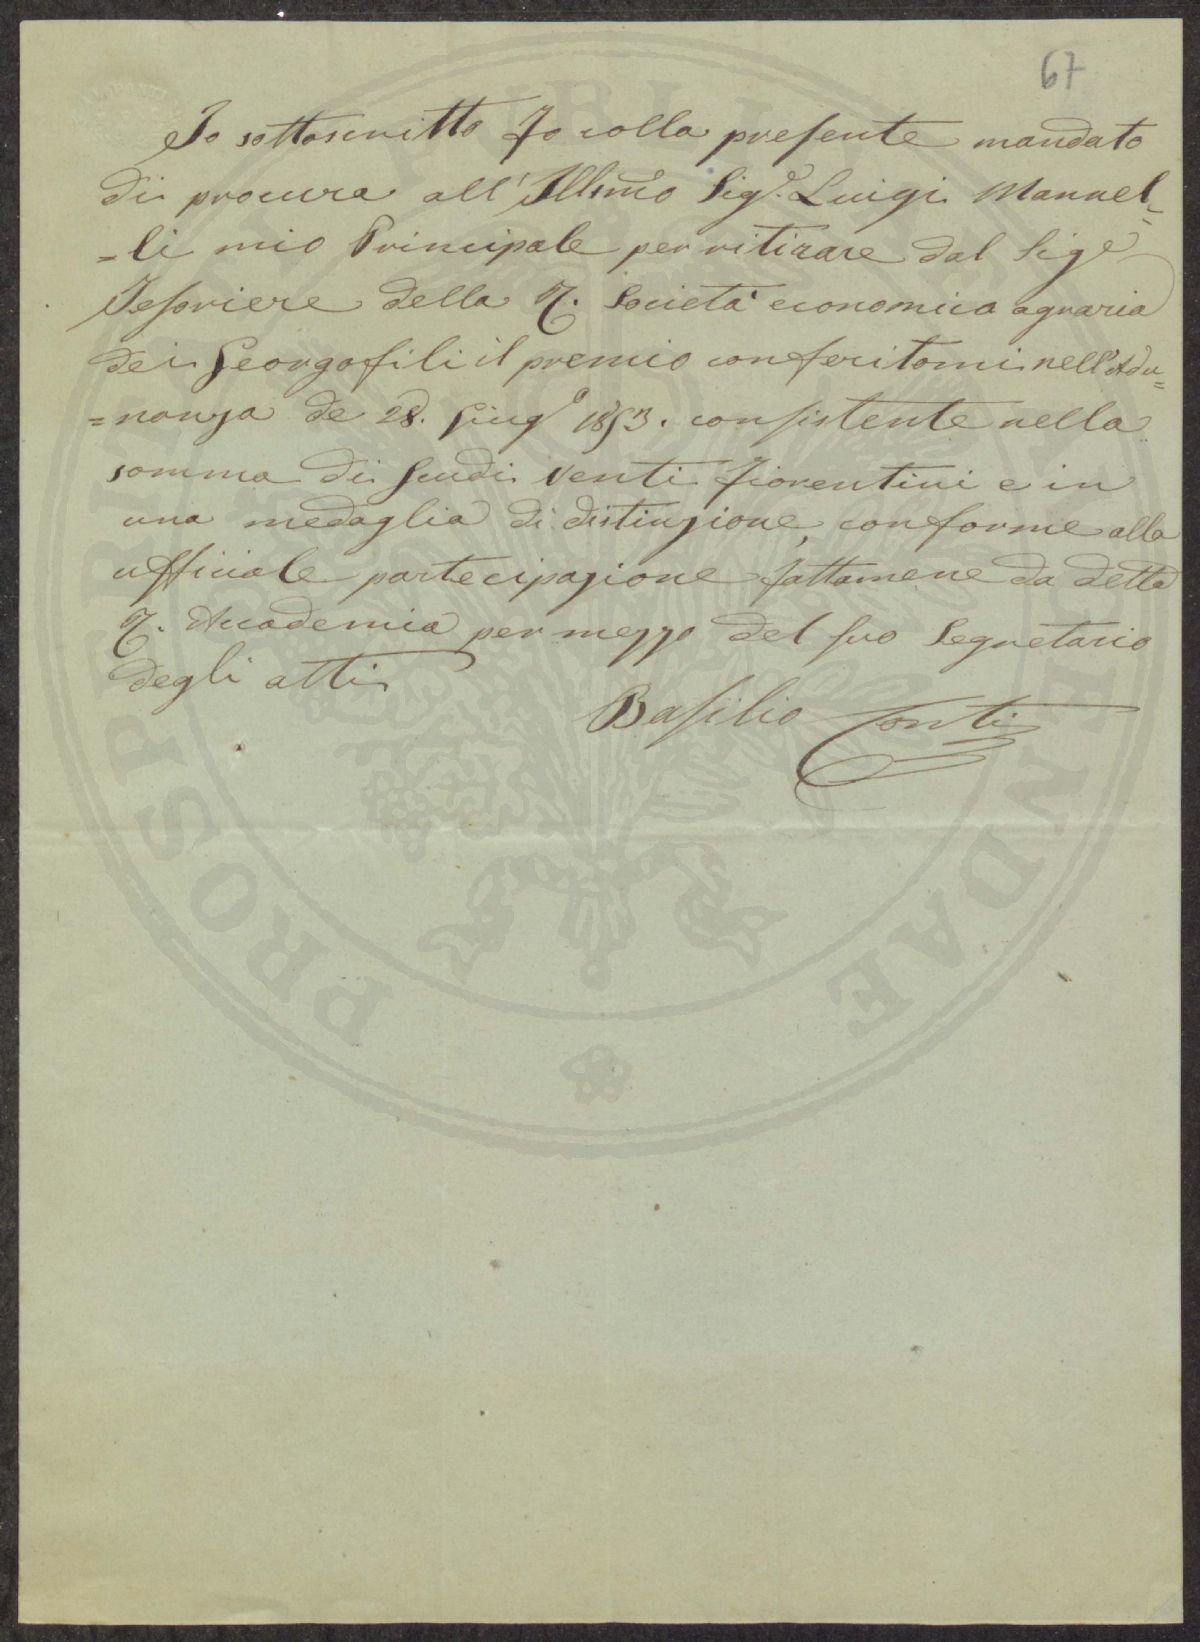 67
Io sottoscritto Fo colla presente mandato
di procura all'Illmo Sige. Luigi Mannel-
=li mio Principale per ritirare dal Sige
Tesoriere della R. Società economica agraria
dei Georgofili il premio conferitomi nell'Adu=
=nanza de 28. Giugo 1853. consistente nella
somma di Scudi Venti Fiorentini e in
una medaglia di distinzione, conforme alla
ufficiale partecipazione fattamene da detta
R. Accademia per mezzo del suo Segretario
degli atti
Basilio Conti
PROSPERITATI PUBLICAE AUGENDAE